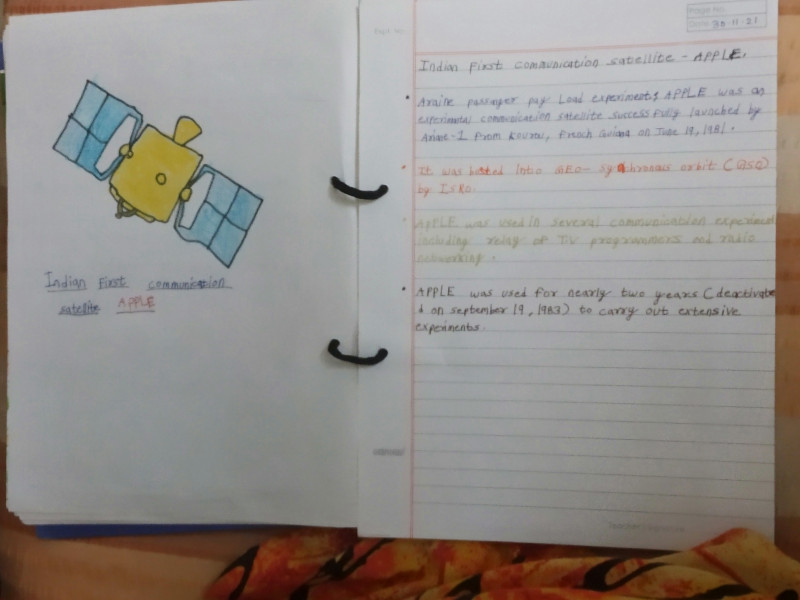 Indian First communication
satellite APPLE
Page No.
Date 30-11-21
Indian First communication satellite - APPLE.
• Araine passanger pay Load experiments APPLE was an
experimental communication satellite successfully launched by
Ariane-1 From Kourou, French Guiana on June 19, 1981.
• It was bosted Into GEO- Synchronous orbit (GSO)
by ISRO.
• APPLE was used in several communication experiment
including relay of T.V programmers and radio
networking.
• APPLE was used for nearly two years (deactivate
d on september 19, 1983) to carry out extensive
experiments.